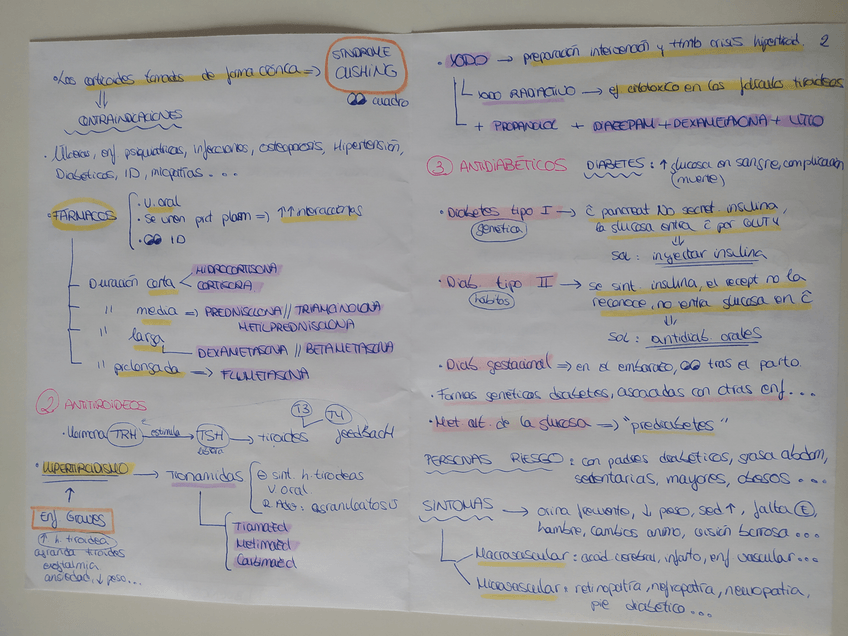 • Los corticoides tomados de forma crónica => SÍNDROME CUSHING
cuadro
⇓
CONTRAINDICACIONES
• Úlceras, enf psiquiatricas, infecciones, osteoporosis, Hipertensión,
Diabéticos, ID, miopatías . . . .
• FÁRMACOS
• V. oral
• Se unen prot plasm => ↑↑ interacciones
ID
Duración corta
HIDROCORTISONA
CORTISONA
" media => PREDNISOLONA // TRIAMCINOLONA
METILPREDNISOLONA
" larga
DEXAMETASONA // BETAMETASONA
" prolongada → FLUMETASONA
2 ANTITIROIDEOS
T3 T4
• Hormona TRH estimula TSH → tiroides feedback
• HIPERTIROIDISMO → Tionamidas
⊖ sint. h. tiroideas
V. oral
R. Adv: agranulocitosis
↑
Enf Graves
↑ h. tiroidea
agranda tiroides
exoftalmia
ansiedad, ↓ peso...
Tiamazol
Metimazol
Carbimazol
2
• YODO → preparación intervención y ttmto crisis hipertiroid.
YODO RADIACTIVO → ef citotóxico en los folículos tiroideos
+ PROPANOLOL + DIAZEPAM + DEXAMETASONA + LITIO
3 ANTIDIABÉTICOS DIABETES : ↑ glucosa en sangre, complicación
(muerte)
• Diabetes tipo I → c̄ pancreat NO secret. insulina,
genética
la glucosa entra c̄ por GLUT4
⇓
Sol: inyectar insulina
• Diab. tipo II → se sint. insulina, el recept no la
hábitos
reconoce, no entra glucosa en c̄
⇓
Sol: antidiab orales
• Diab gestacional => en el embarazo, tras el parto.
• Formas genéticas diabetes, asociadas con otras enf . . .
• Met alt. de la glucosa => "prediabetes"
PERSONAS RIESGO : con padres diabéticos, grasa abdom,
sedentarias, mayores, obesos . . .
SÍNTOMAS → orina frecuente, ↓ peso, sed ↑, falta E,
hambre, cambios animo, visión borrosa . . .
Macrovascular : acad cerebral, infarto, enf vascular . . .
Microvascular : retinopatía, nefropatía, neuropatía,
pie diabético . . .